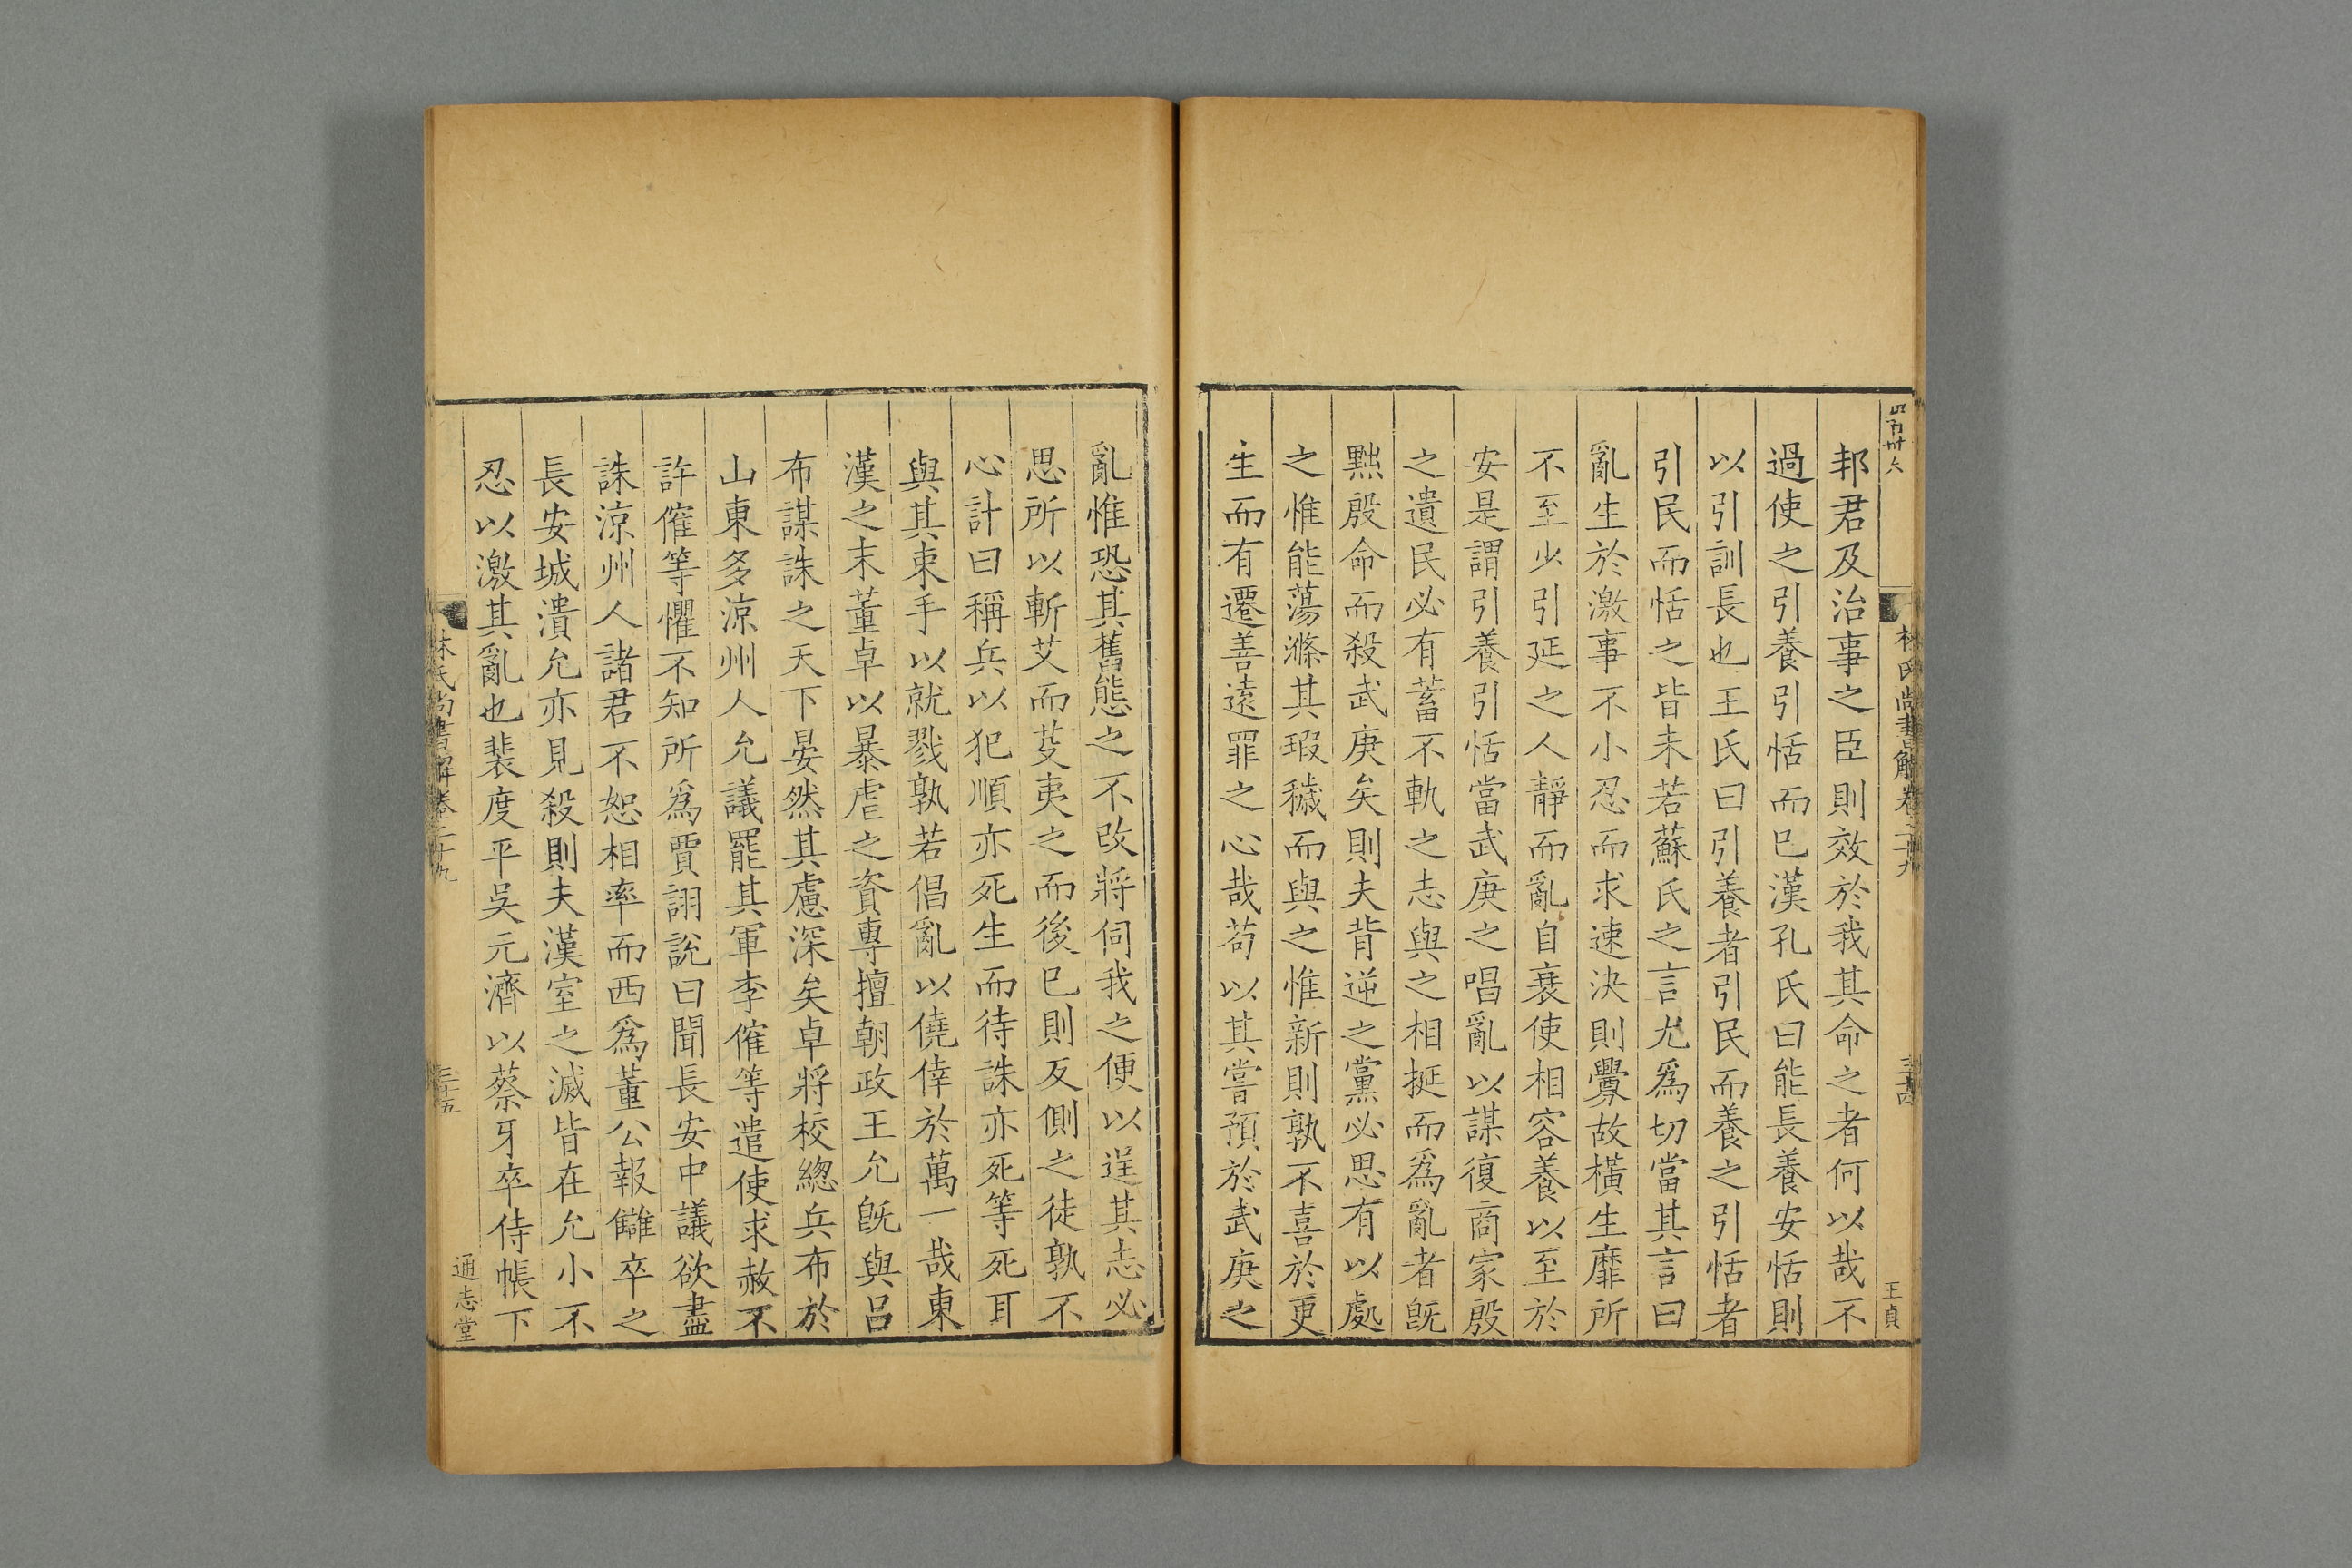 邦君及治事之臣則效於我其命之者何以哉不
過使之引養引恬而巳漢孔氏曰能長養安恬則
以引訓長也王氏曰引養者引民而養之引恬者
引民而恬之皆未若蘇氏之言尤爲切當其言曰
亂生於激事不小忍而求速決則釁故橫生靡所
不至少引延之人靜而亂自衰使相容養以至於
安是謂引養引恬當武庚之唱亂以謀復商家殷
之遺民必有蓄不軌之志與之相挻而爲亂者旣
黜殷命而殺武庚矣則夫背逆之黨必思有以處
之惟能蕩滌其瑕穢而與之惟新則孰不喜於更
生而有遷善遠罪之心哉苟以其嘗預於武庚之
林氏尚書解卷二十九
三十四
王貞
亂惟恐其舊態之不改將伺我之便以逞其志必
思所以斬艾而芟夷之而後巳則反側之徒孰不
心計曰稱兵以犯順亦死生而待誅亦死等死耳
與其束手以就戮孰若倡亂以僥倖於萬一哉東
漢之末董卓以暴虐之資專擅朝政王允旣與呂
布謀誅之天下晏然其慮深矣卓將校總兵布於
山東多涼州人允議罷其軍李傕等遣使求赦不
許傕等懼不知所爲賈詡說曰聞長安中議欲盡
誅涼州人諸君不恕相率而西爲董公報讎卒之
長安城潰允亦見殺則夫漢室之滅皆在允小不
忍以激其亂也裴度平吳元濟以蔡牙卒侍帳下
林氏尚書解卷二十九
三十五
通志堂